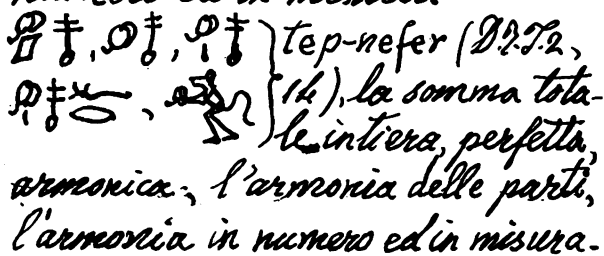 tep-nefer
14), la somma tota-
le intiera, perfetta,
armonica-, l'armonia delle parti,
l'armonia in numero ed in misura.-